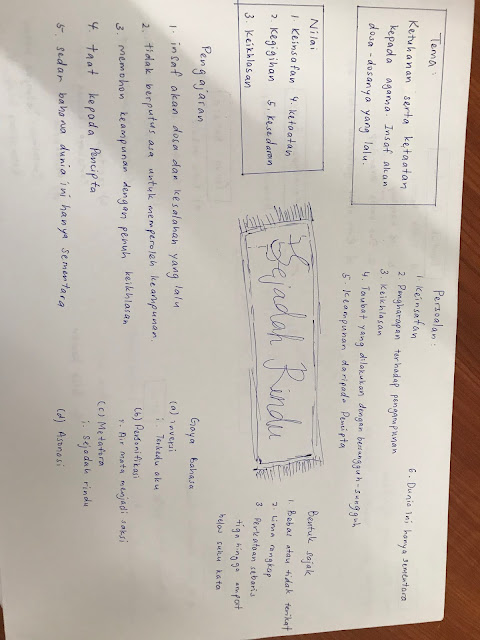 Tema:
Ketuhanan serta ketaatan
kepada agama. Insaf akan
dosa-dosanya yang lalu.
Persoalan:
1 Keinsafan
2 Pengharapan terhadap pengampunan
3. Keikhlasan
4. Taubat yang dilakukan dengan bersungguh-sungguh
5. Keampunan daripada Pencipta
6. Dunia ini hanya sementara
Nilai
1. Keinsafan 4. Ketaatan
2. Kegigihan 5. Kesedaran
3. Keikhlasan
Sejadah Rindu
Bentuk sajak
1. Bebas atau tidak terikat
2. Lima rangkap
3. Perkataan sebaris
tiga hingga empat
belas suku kata
Pengajaran
1. insaf akan dosa dan kesalahan yang lalu
2. tidak berputus asa untuk memperoleh keampunan.
3. memohon keampunan dengan penuh keikhlasan
4. taat kepada Pencipta
5. sedar bahawa dunia ini hanya sementara
Gaya Bahasa
(a) Inversi
i. Teresdu aku
(b) Personifikasi
i. Air mata menjadi saksi
(c) Metafora
i. sejadah rindu
(d) Asonasi